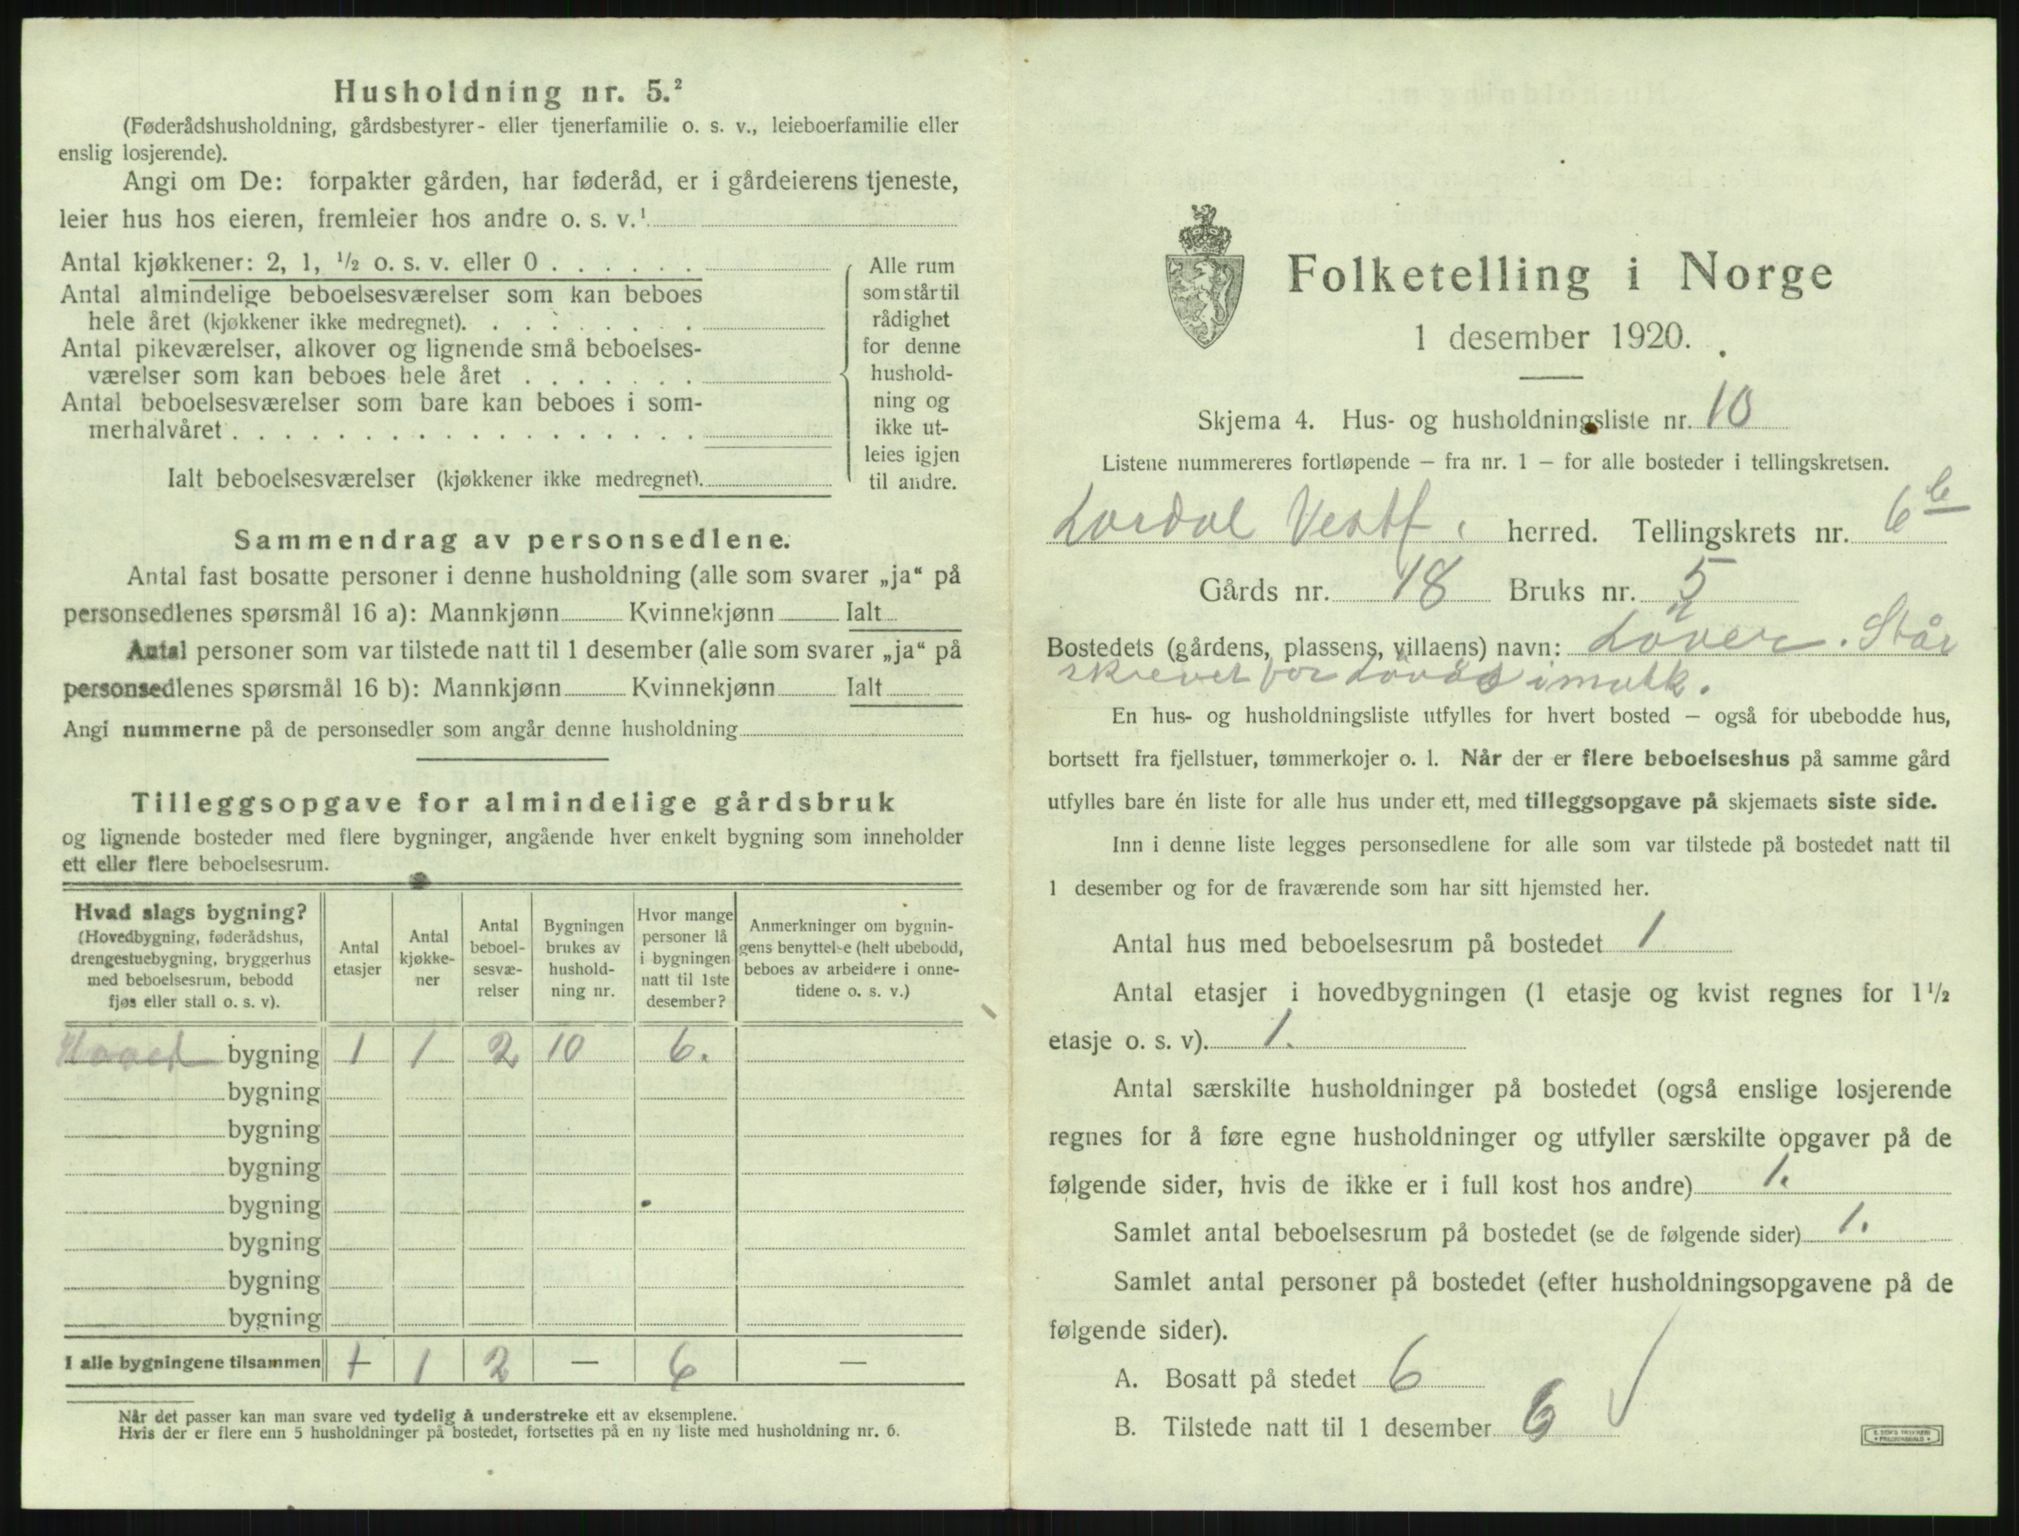 Husholdning nr. 5.²
(Føderådshusholdning, gårdsbestyrer- eller tjenerfamilie o. s. v., leieboerfamilie eller
enslig losjerende).
Angi om De: forpakter gården, har føderåd, er i gårdeierens tjeneste,
leier hus hos eieren, fremleier hos andre o. s. v.¹
Antal kjøkkener: 2, 1, ½ o. s. v. eller 0 . . . . . .
Antal almindelige beboelsesværelser som kan beboes
hele året (kjøkkener ikke medregnet). . . . . . . . .
Antal pikeværelser, alkover og lignende små beboelses-
værelser som kan beboes hele året . . . . . . .
Antal beboelsesværelser som bare kan beboes i som-
merhalvåret . . . . . . . . . . . . . . . . .
Ialt beboelsesværelser (kjøkkener ikke medregnet).
Alle rum
som står til
rådighet
for denne
hushold-
ning og
ikke ut-
leies igjen
til andre.
Sammendrag av personsedlene.
Antal fast bosatte personer i denne husholdning (alle som svarer „ja“ på
personsedlenes spørsmål 16 a): Mannkjønn Kvinnekjønn Ialt
Antal personer som var tilstede natt til 1 desember (alle som svarer „ja“ på
personsedlenes spørsmål 16 b): Mannkjønn Kvinnekjønn Ialt
Angi nummerne på de personsedler som angår denne husholdning
Tilleggsopgave for almindelige gårdsbruk
og lignende bosteder med flere bygninger, angående hver enkelt bygning som inneholder
ett eller flere beboelsesrum.
Hvad slags bygning?
(Hovedbygning, føderådshus,
drengestuebygning, bryggerhus
med beboelsesrum, bebodd
fjøs eller stall o. s. v).
Antal
etasjer
Antal
kjøkke-
ner
Antal
beboel-
sesvæ-
relser
Bygningen
brukes av
hushold-
ning nr.
Hvor mange
personer lå
i bygningen
natt til 1ste
desember?
Anmerkninger om bygnin-
gens benyttelse (helt ubebodd,
beboes av arbeidere i onne-
tidene o. s. v.)
Hoved bygning 1 1 2 10 6.
bygning
bygning
bygning
bygning
bygning
bygning
bygning
I alle bygningene tilsammen 1 1 2 — 6 —
Når det passer kan man svare ved tydelig å understreke ett av eksemplene.
Hvis der er flere enn 5 husholdninger på bostedet, fortsettes på en ny liste med husholdning nr. 6.
Folketelling i Norge
1 desember 1920.
Skjema 4. Hus- og husholdningsliste nr. 10
Listene nummereres fortløpende – fra nr. 1 – for alle bosteder i tellingskretsen.
Lardal Vestf. herred. Tellingskrets nr. 6 b
Gårds nr. 18 Bruks nr. 5
Bostedets (gårdens, plassens, villaens) navn: Løver. Står
skrevet for Løvås i matk.
En hus- og husholdningsliste utfylles for hvert bosted – også for ubebodde hus,
bortsett fra fjellstuer, tømmerkojer o. l. Når der er flere beboelseshus på samme gård
utfylles bare én liste for alle hus under ett, med tilleggsopgave på skjemaets siste side.
Inn i denne liste legges personsedlene for alle som var tilstede på bostedet natt til
1 desember og for de fraværende som har sitt hjemsted her.
Antal hus med beboelsesrum på bostedet 1
Antal etasjer i hovedbygningen (1 etasje og kvist regnes for 1½
etasje o. s. v). 1.
Antal særskilte husholdninger på bostedet (også enslige losjerende
regnes for å føre egne husholdninger og utfyller særskilte opgaver på de
følgende sider, hvis de ikke er i full kost hos andre) 1.
Samlet antal beboelsesrum på bostedet (se de følgende sider) 1.
Samlet antal personer på bostedet (efter husholdningsopgavene på de
følgende sider).
A. Bosatt på stedet 6
B. Tilstede natt til 1 desember 6